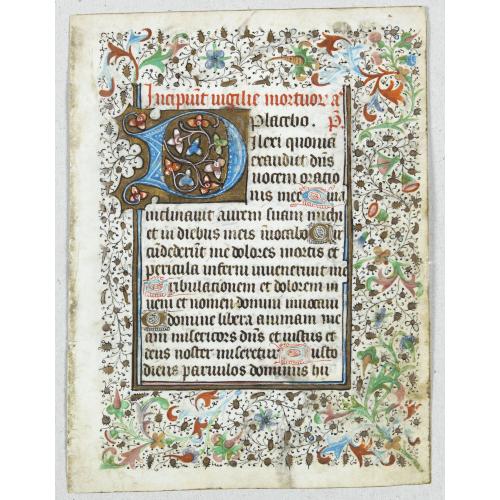 Incipiūt vigilie mortuor a
Placebo. p̄
Dilexi quoniā
exaudiet dn̄s
vocem oratio
nis mee Quia
inclinavit aurem suam michi
et in diebus meis īvocabo Cir
cūdederūt me dolores mortis et
pericula inferni invenerūt me
Tribulacionem et dolorem in
veni et nomen domini invocavi
O domine libera animam me
am misericors dn̄s et iustus et
deus noster miseretur Custo
diens parvulos dominus hu